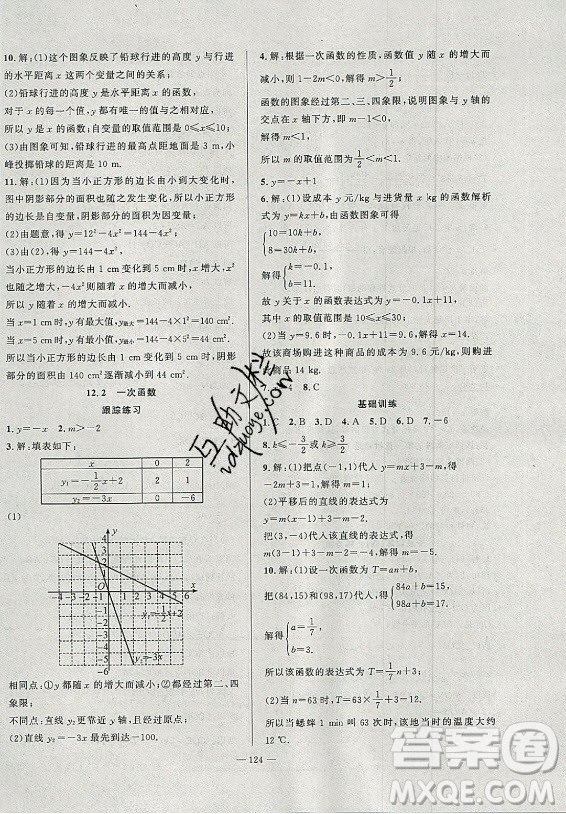 10.解:(1)这个图象反映了铅球行进的高度 y 与行进
的水平距离 x 这两个变量之间的关系;
(2)铅球行进的高度 y 与水平距离 x 的图象中,
对于 x 的每一个值,y 都有唯一的值与之相对应,
所以 y 是 x 的函数;自变量的取值范围是 0≤x≤10;
(3)由图象可知,铅球行进的最高点距地面是 3 m,小
峰投掷铅球的距离是 10 m.
11.解:(1)因为当小正方形的边长由小到大变化时,
图中阴影部分的面积也随之发生变化,所以小正方
形的边长是自变量,阴影部分的面积是因变量;
(2)由题意,得 y=12²-4x²=144-4x²;
(3)由(2)知:y=144-4x²,
当小正方形的边长由 1 cm 变化到 5 cm 时,x 增大,
x² 也随之增大,-4x² 则随着 x 的增大而减小,
所以 y 随着 x 的增大而减小.
当 x=1 cm 时,y 有最大值,y最大=144-4×1²=140.
当 x=5 cm 时,y 有最小值,y最小=144-4×5²=44.
所以当小正方形的边长由 1 cm 变化到 5 cm 时,阴影
部分的面积由 140 cm² 逐渐减小到 44 cm².
12.2 一次函数
跟踪练习
1.y=-x 2.m>-2
3.解:填表如下:
x 0 2
y₁=-1/2x+2 2 1
y₂=-3x 0 -6
(1)
y
4
3
2
1
-4 -3 -2 -1 O 1 2 3 4 5 6 x
-1
-2
-3
-4
-5
-6
y₁=-1/2x+2
y₂=-3x
相同点:①y 都随 x 的增大而减小;②都经过第二、四
象限;
不同点:直线与 y 轴的交点不同.
(2)直线 y₂=-3x 最先到达-100.
4.解:根据一次函数的性质,函数值 y 随 x 的增大而
减小,则 1-2m<0,解得 m>1/2;
函数的图象经过第二、三、四象限,说明图象与 y 轴的
交点在 x 轴下方,即 m-1<0,
解得 m<1,
所以 m 的取值范围为1/2<m<1.
5.y=-x+1
6.解:(1)设成本 y 元/kg 与进货量 x kg 的函数解析
式为 y=kx+b,由函数图象可以得
{10=10k+b,
8=30k+b,
解得{k=-0.1,
b=11.
故 y 关于 x 的函数表达式为 y=-0.1x+11,
其中 x 的取值范围为 10≤x≤30;
(2)当 y=9.6 时,-0.1x+11=9.6,解得 x=14.
故该商场购进这种商品的成本为 9.6 元/kg,则购进
此商品 14 kg.
8.C
基础训练
1.C 2.B 3.D 4.A 5.D 6.D 7.-6
9.解:(1)把点 P(-2,1)代入 y=mx+3,得
-2m+3=1,解得 m=1.
(2)平移后的直线的表达式为
y=mx+3-m,即 y=x+3-m.
把(3,-4)代入该直线的表达式,得
3+3-m=-4,解得 m=10.
10.解:(1)设一次函数的表达式为 T=an+b,
把(84,15)和(98,17)代入,得{84a+b=15,
98a+b=17.
解得{a=1/7,
b=3.
所以该函数的表达式为 T=1/7n+3;
(2)当 n=63 时,T=1/7×63+3=12.
所以当蟋蟀 1 min 叫 63 次时,该地当时的温度大约
12 ℃.
— 124 —
互助文档
idzuoye.com
答案圈
MXQE.COM